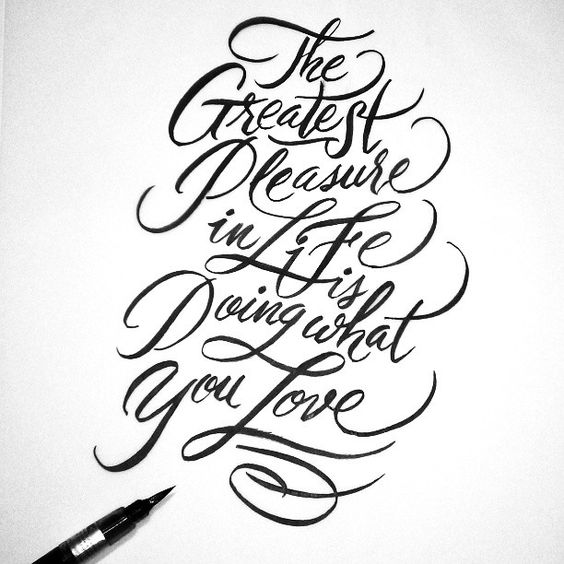 The
Greatest
Pleasure
in LiFe
is
Doing what
You Love